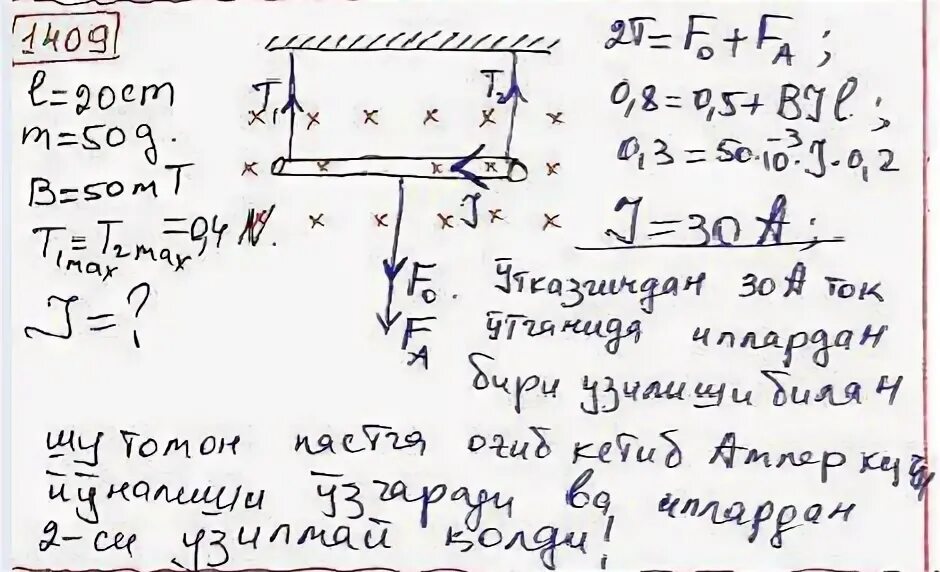 1409
l=20cm
m=50g.
B=50mT
T₁max=T₂max=0,4 N.
J=?
T₁
T₂
J
F₀.
F_A
2T=F₀+F_A;
0,8=0,5+BJl;
0,3=50·10⁻³·J·0,2
J=30A;
Ўтказгичдан 30A ток
ўтганида иплардан
бири узилиши билан
шу томон пастга оғиб кетиб Ампер кучи
йўналиши ўзгаради ва иплардан
2-си узилмай қолди!